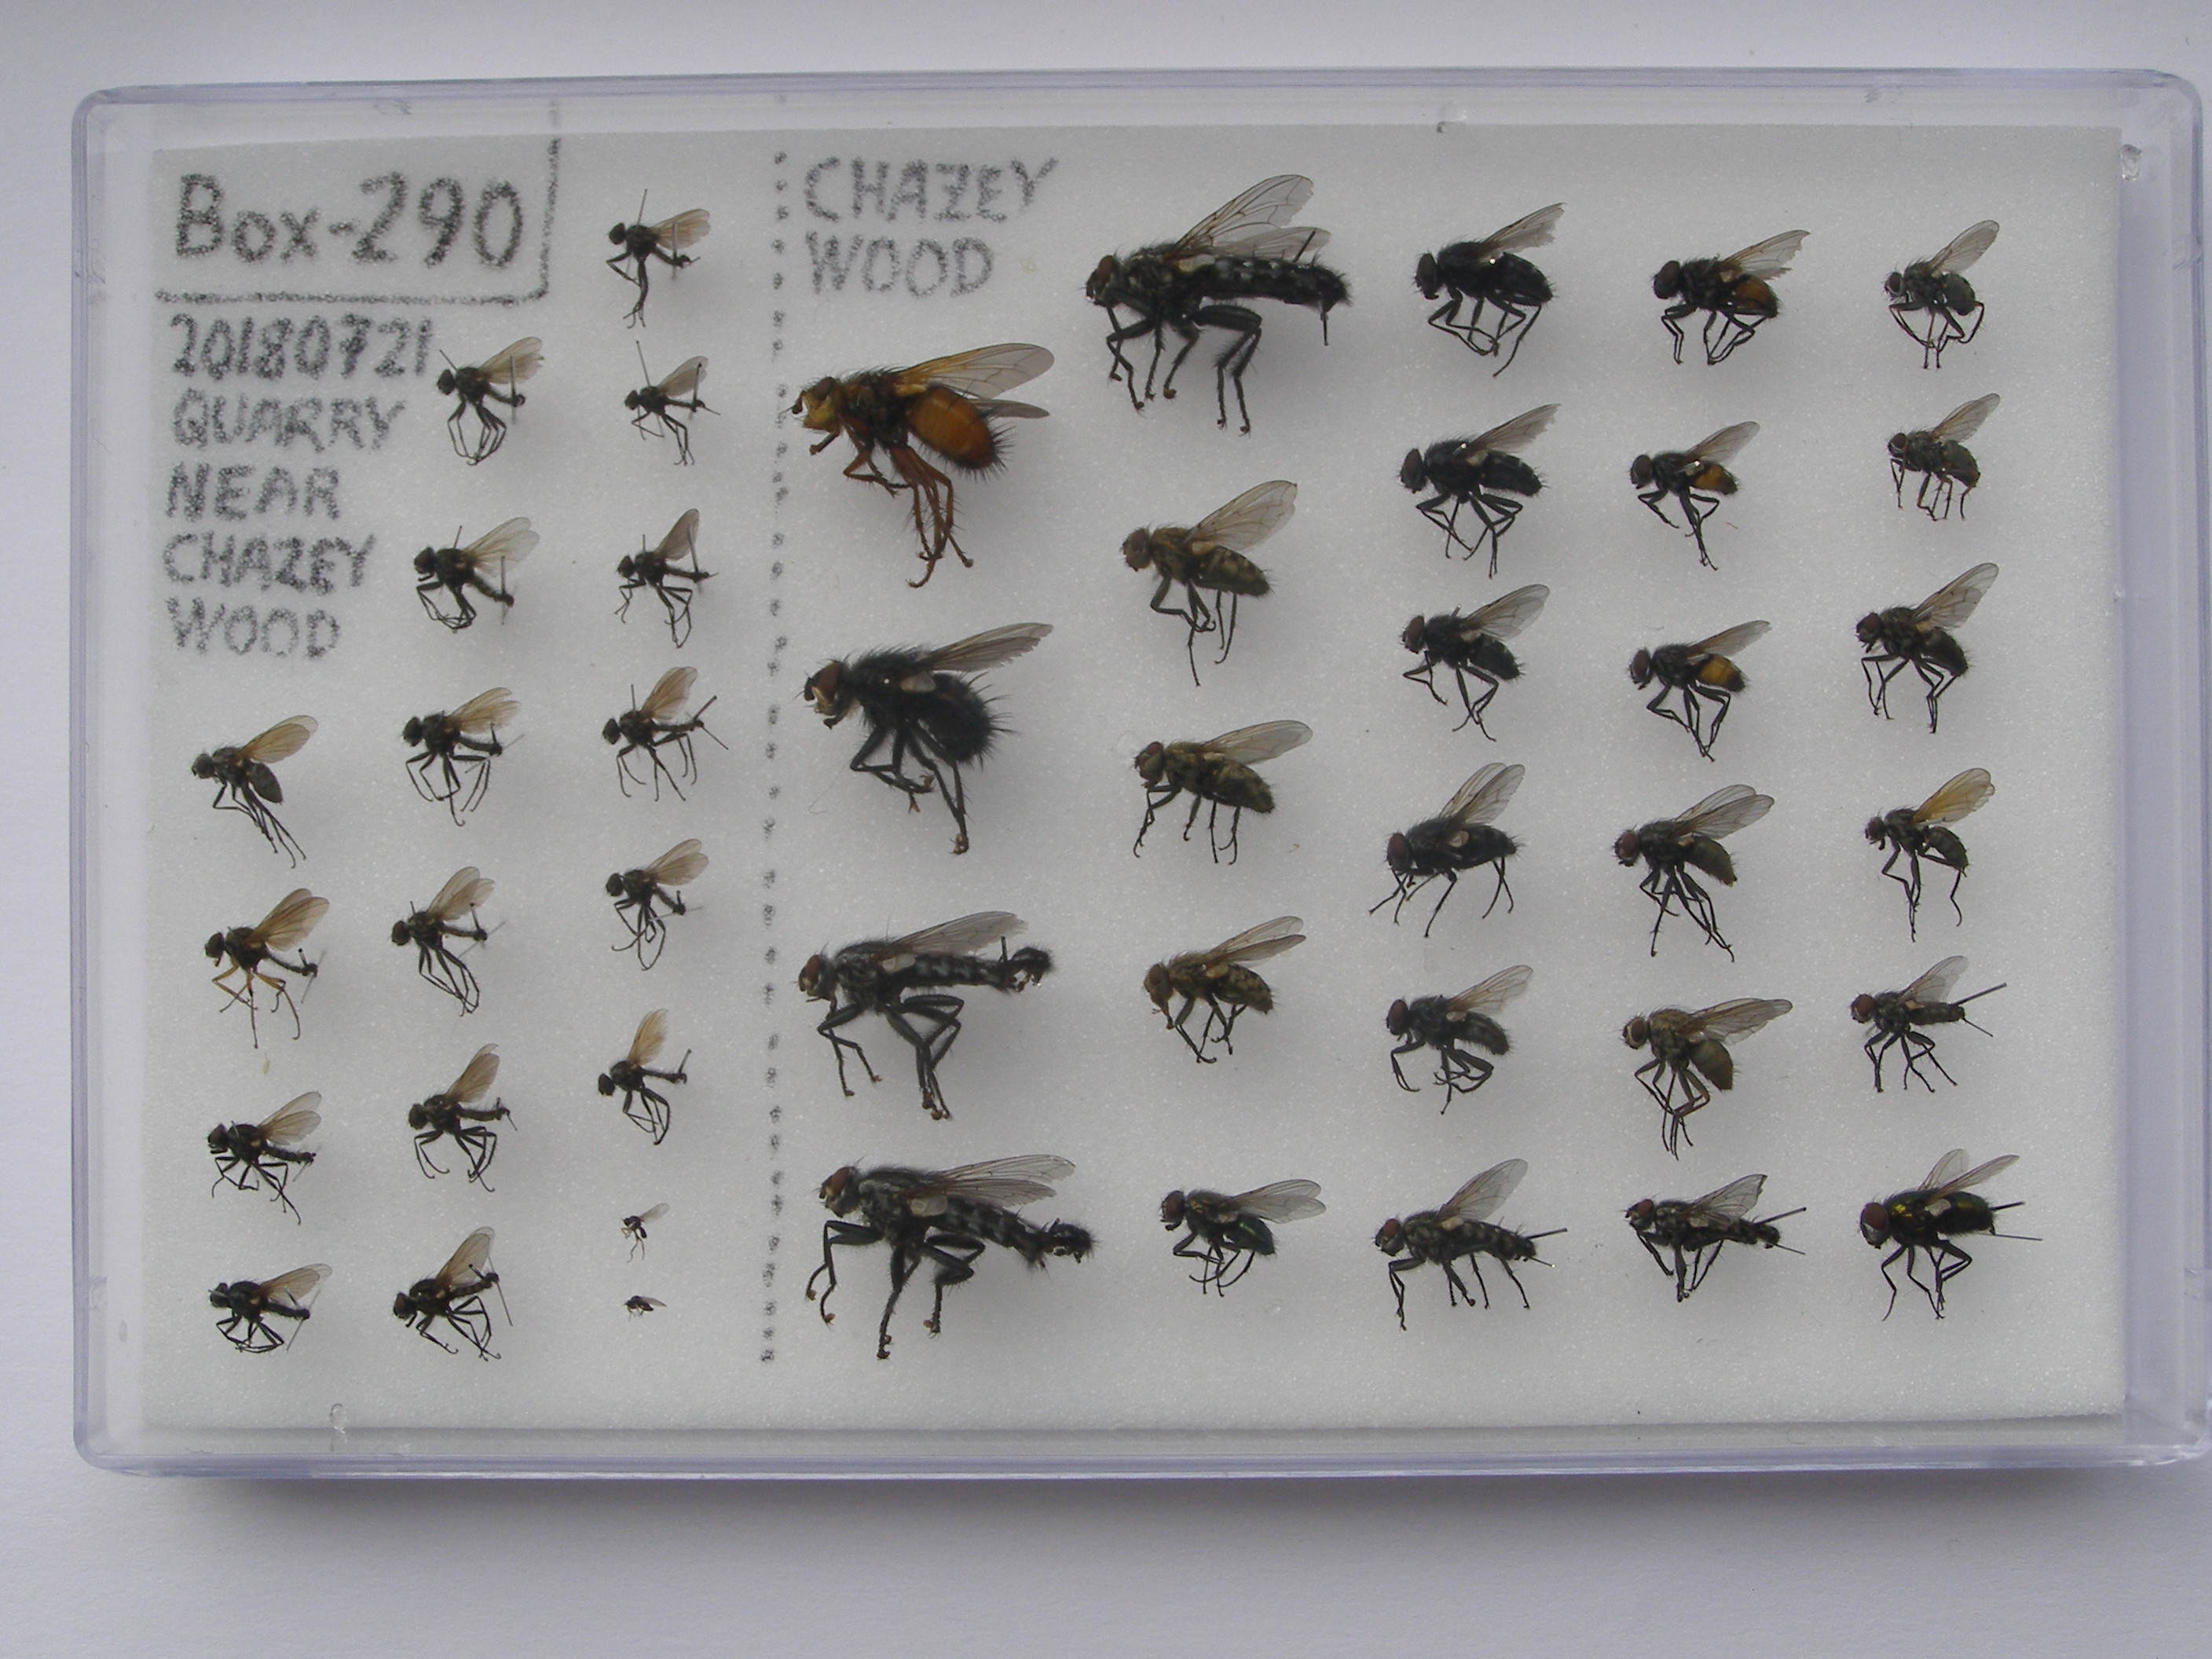 Box-290
20180721
QUARRY
NEAR
CHAZEY
WOOD
CHAZEY
WOOD